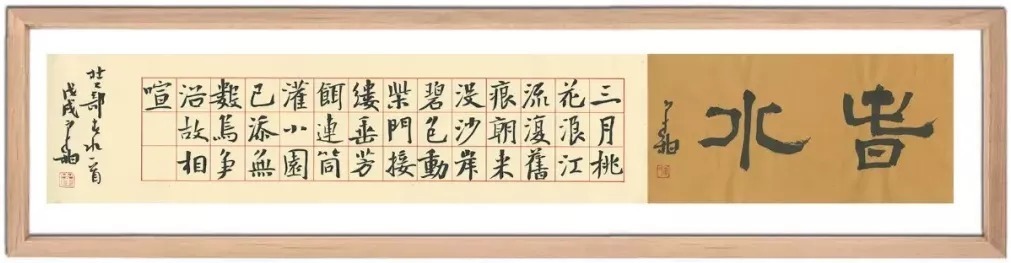 春水
三月桃
花浪江
流復舊
痕朝来
没沙岸
碧色動
柴門接
縷垂芳
餌連筒
灌小園
已添無
數鳥争
浴故相
喧
杜工部春水一首
戊戌